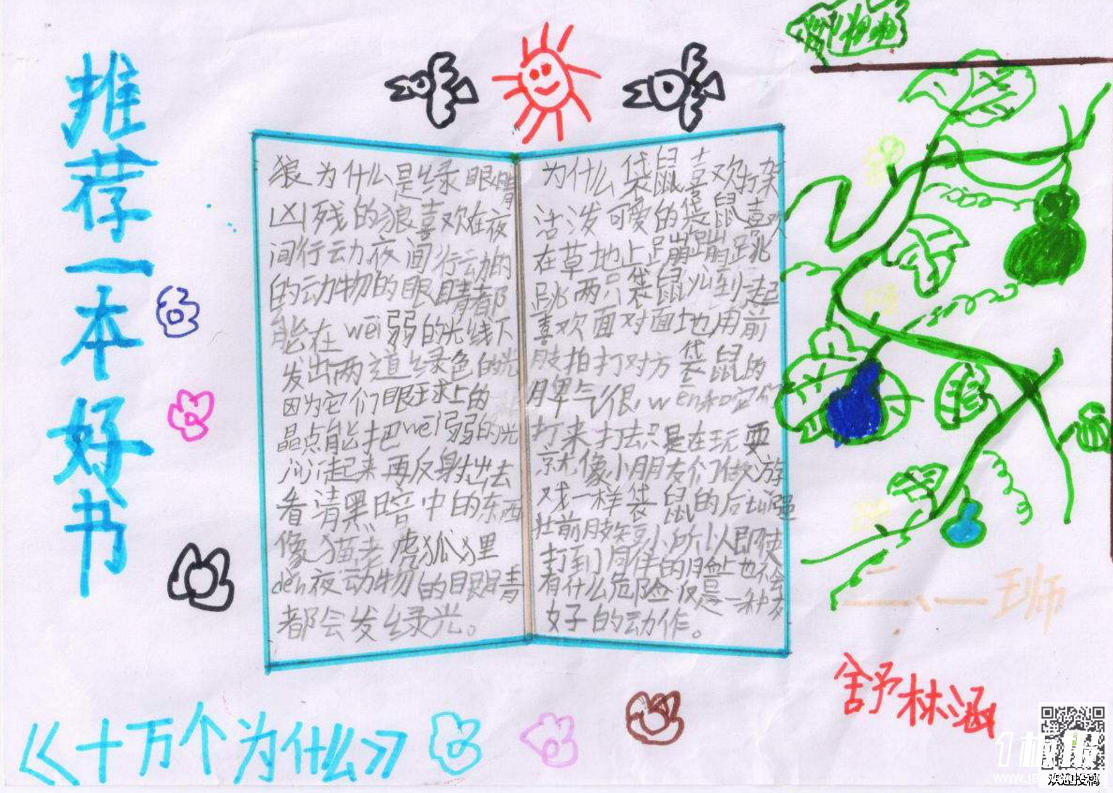 推荐一本好书
狼为什么是绿眼睛
凶残的狼喜欢在夜
间行动夜间行动的
的动物的眼睛都
能在wei弱的光线下
发出两道绿色的光
因为它们眼球上的
晶点能把wei弱的光
起来再反射出去
看清黑暗中的东西
像猫老虎狐狸
deh夜动物的眼睛
都会发绿光。
为什么袋鼠喜欢打架
活泼可爱的袋鼠喜欢
在草地上蹦蹦跳
跳两只袋鼠一起
喜欢面对面地用前
肢拍打对方袋鼠的
脾气很wen和它们
打来打去只是在玩耍
就像小朋友们做游
戏一样袋鼠的后强
壮前肢短小所以即使
打到同伴的身上也不会
有什么危险仅是一种友
好的动作。
《十万个为什么》
舒林涵
1板报
欢迎投稿